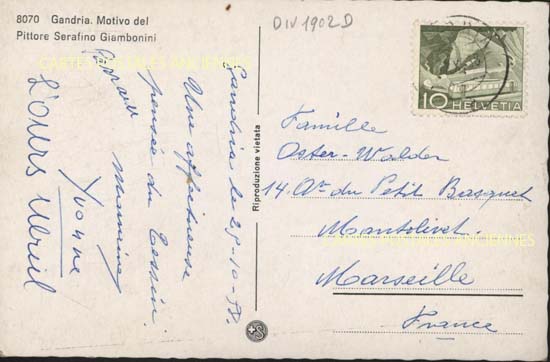 8070 Gandria. Motivo del
Pittore Serafino Giambonini
DIV 1902 D
CARTES POSTALES ANCIENNES
Gandria le 25-10-58.
Une affectueuse
pensée du Tessin.
Mummy
Yvonne
L'Ours Ulrich
Riproduzione vietata
S
10 HELVETIA
Famille
Oster-Walder
14. Av. du Petit Bosquet
Montolivet.
Marseille
France
CARTES POSTALES ANCIENNES